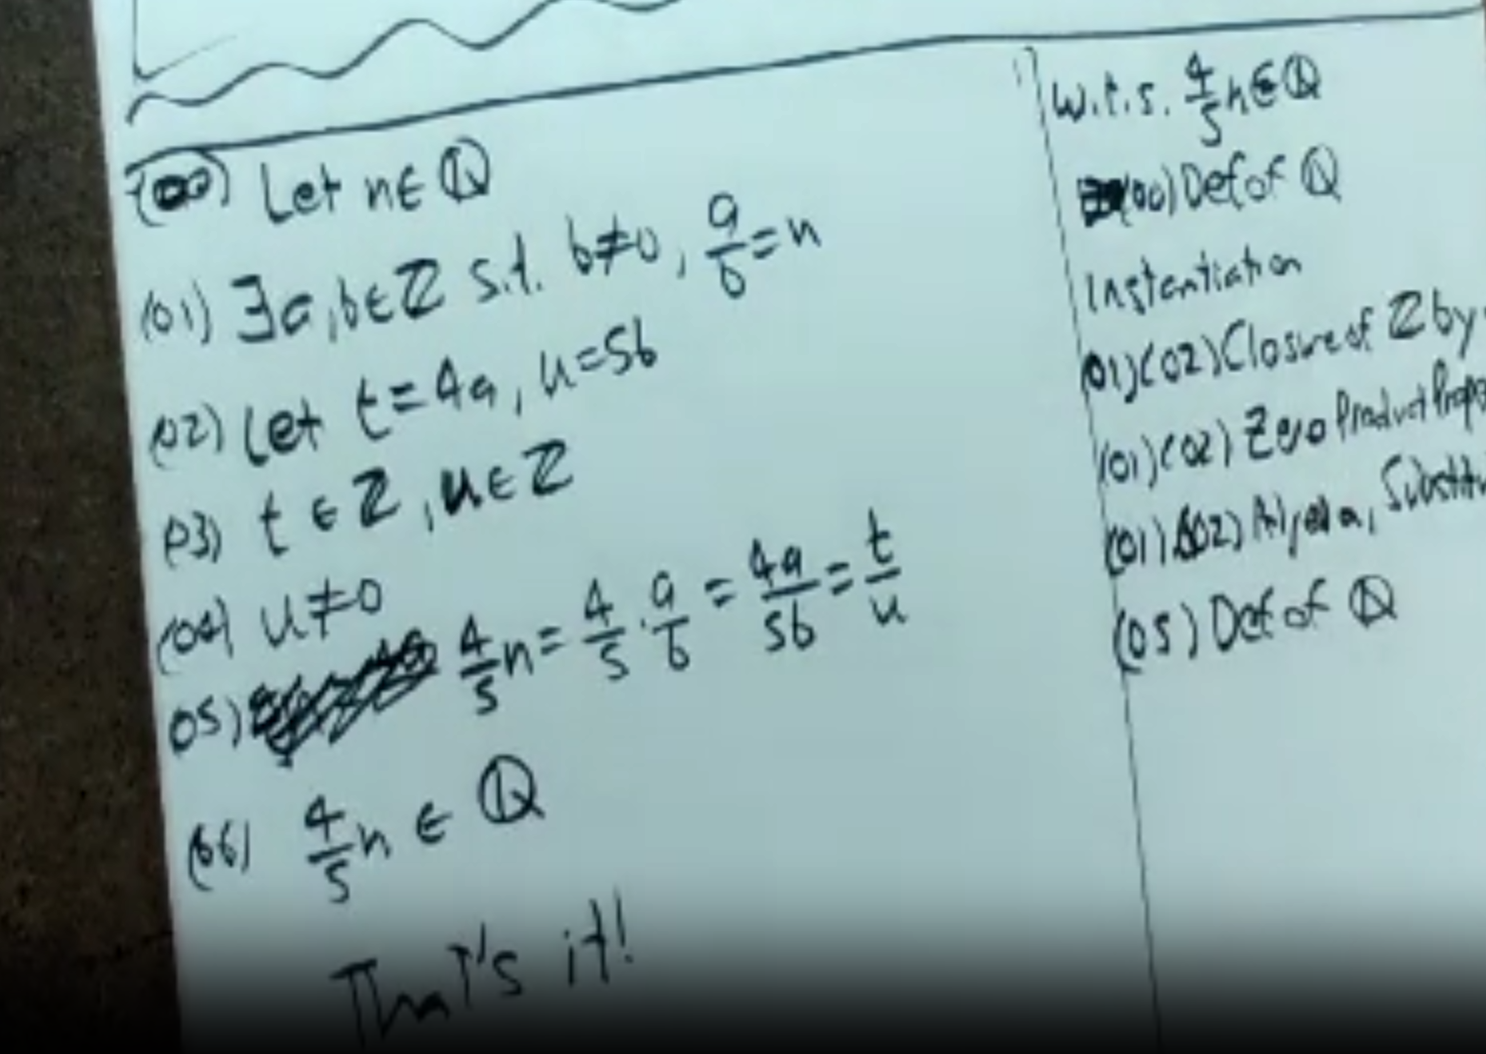 (00) Let n∈ℚ
(01) ∃a,b∈ℤ s.t. b≠0, a/b=n
(02) Let t=4a, u=5b
(03) t∈ℤ, u∈ℤ
(04) u≠0
(05) 4/5n=4/5·a/b=4a/5b=t/u
(06) 4/5n∈ℚ
That's it!
W.t.s. 4/5n∈ℚ
(00) Def of ℚ
Instantiation
(01)(02) Closure of ℤ by
(01)(02) Zero Product
(01)(02) Algebra,
(05) Def of ℚ